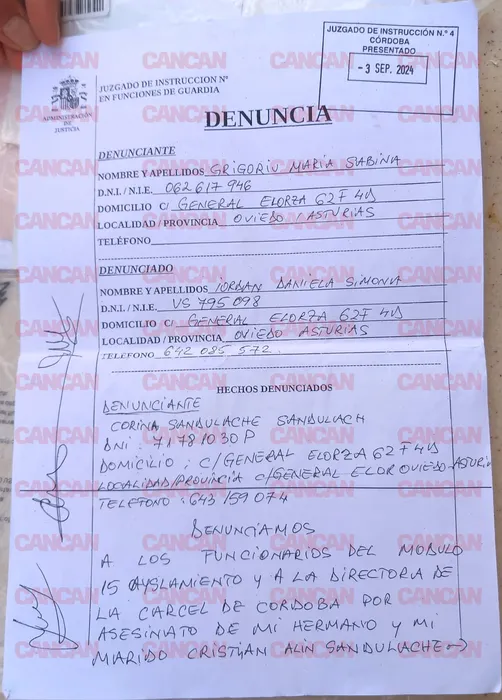 JUZGADO DE INSTRUCCIÓN N.º 4
CÓRDOBA
PRESENTADO
- 3 SEP. 2024
ADMINISTRACIÓN
DE
JUSTICIA
JUZGADO DE INSTRUCCION Nº
EN FUNCIONES DE GUARDIA
DENUNCIA
DENUNCIANTE
NOMBRE Y APELLIDOS GRIGORIU MARIA SABINA
D.N.I. / N.I.E. 062617946
DOMICILIO C/ GENERAL ELORZA 62 F 4D
LOCALIDAD / PROVINCIA OVIEDO / ASTURIAS
TELÉFONO
DENUNCIADO
NOMBRE Y APELLIDOS IORDAN DANIELA SIMONA
D.N.I. / N.I.E. VS 795098
DOMICILIO C/ GENERAL ELORZA 62F 4D
LOCALIDAD / PROVINCIA OVIEDO ASTURIAS
TELÉFONO 642 085 572
HECHOS DENUNCIADOS
DENUNCIANTE
CORINA SANDULACHE SANDULACH
DNI: 71781030P
DOMICILIO: C/GENERAL ELORZA 62 F 4D
LOCALIDAD/PROVINCIA C/GENERAL ELOR OVIEDO-ASTURI
TELEFONO: 643 159 074
DENUNCIAMOS
A LOS FUNCIONARIOS DEL MODULO
15 AYSLAMIENTO Y A LA DIRECTORA DE
LA CARCEL DE CORDOBA POR
ASESINATO DE MI HERMANO Y MI
MARIDO CRISTIAN ALIN SANDULACHE →
CANCAN